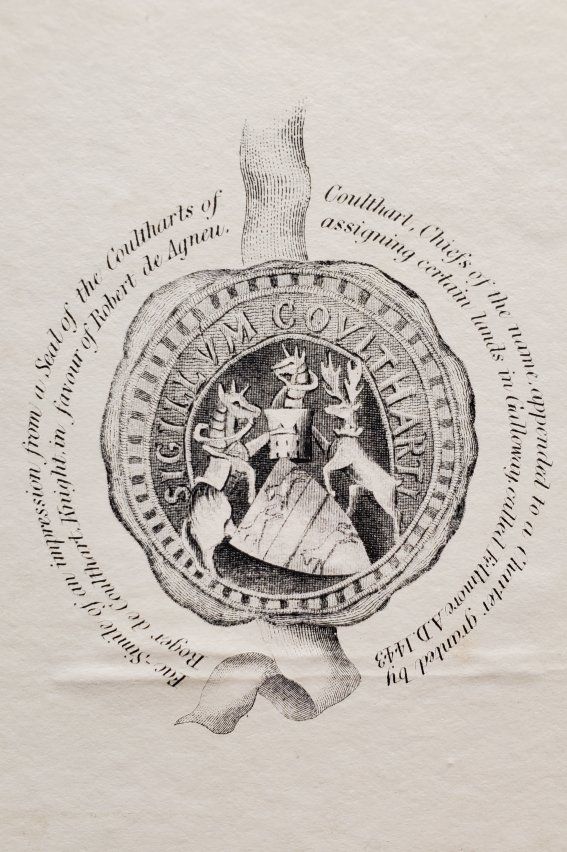 Fac-Simile of an impression from a Seal of the Coultharts of Coulthart, Chiefs of the name, appended to a Charter granted by
Roger de Coulthart, Knight, in favour of Robert de Agneu, assigning certain lands in Galloway, called Fellmore, A.D. 1443
SIGILLVM COVLTHARTI